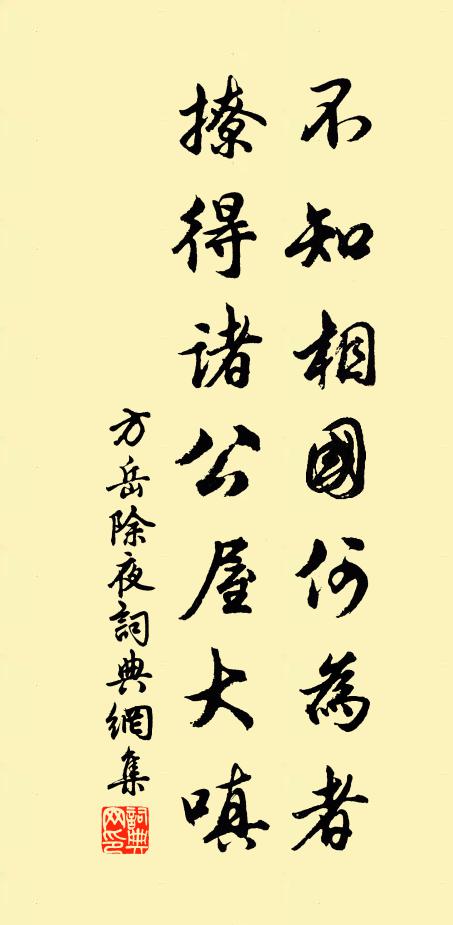 不知相國何為者
撩得諸公屋大嗔
方岳除夜詞典網集
詞典網印